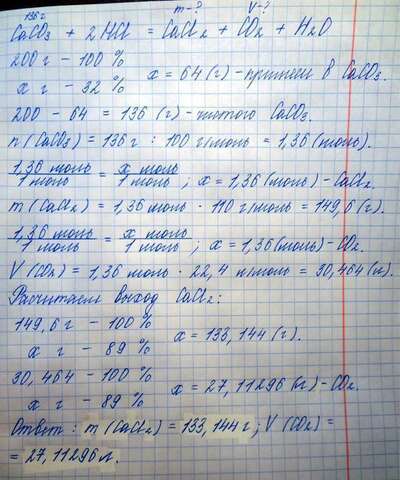 136 г m-? V-?
CaCO₃ + 2HCl = CaCl₂ + CO₂ + H₂O
200 г - 100 %
x г - 32 % x = 64 (г) - примеси в CaCO₃.
200 - 64 = 136 (г) - чистого CaCO₃.
n (CaCO₃) = 136 г : 100 г/моль = 1,36 (моль).
1,36 моль / 1 моль = x моль / 1 моль ; x = 1,36 (моль) - CaCl₂.
m (CaCl₂) = 1,36 моль · 110 г/моль = 149,6 (г).
1,36 моль / 1 моль = x моль / 1 моль ; x = 1,36 (моль) - CO₂.
V (CO₂) = 1,36 моль · 22,4 л/моль = 30,464 (л).
Расчитаем выход CaCl₂ :
149,6 г - 100 %
x г - 89 % x = 133,144 (г).
30,464 - 100 %
x г - 89 % x = 27,11296 (г) - CO₂.
Ответ : m (CaCl₂) = 133,144 г ; V (CO₂) =
= 27,11296 л.